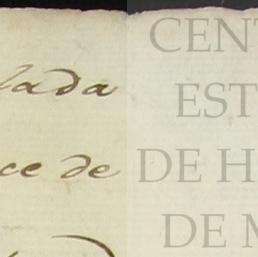 lada
ce de
CENT
EST
DE H
DE M